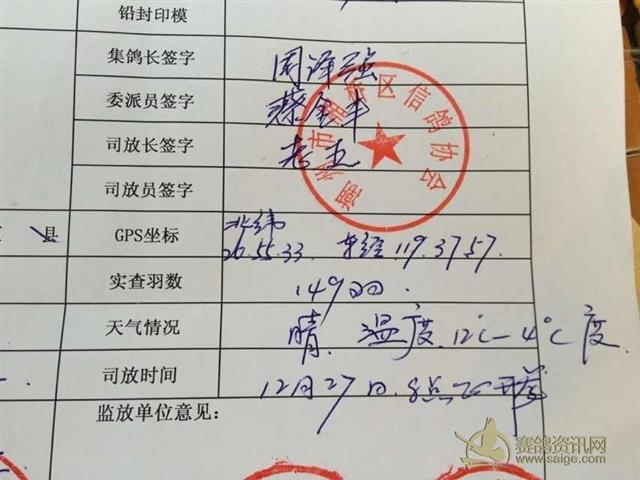 铅封印模
集鸽长签字 周泽强
委派员签字
司放长签字
司放员签字
市 桥区信鸽协会
县 GPS坐标 北纬 26.55.33 东经119.37.57.
实查羽数 149
天气情况 晴. 温度 12℃-4℃度
司放时间 12月27日.8点
监放单位意见：
赛鸽资讯网
www.saige.com